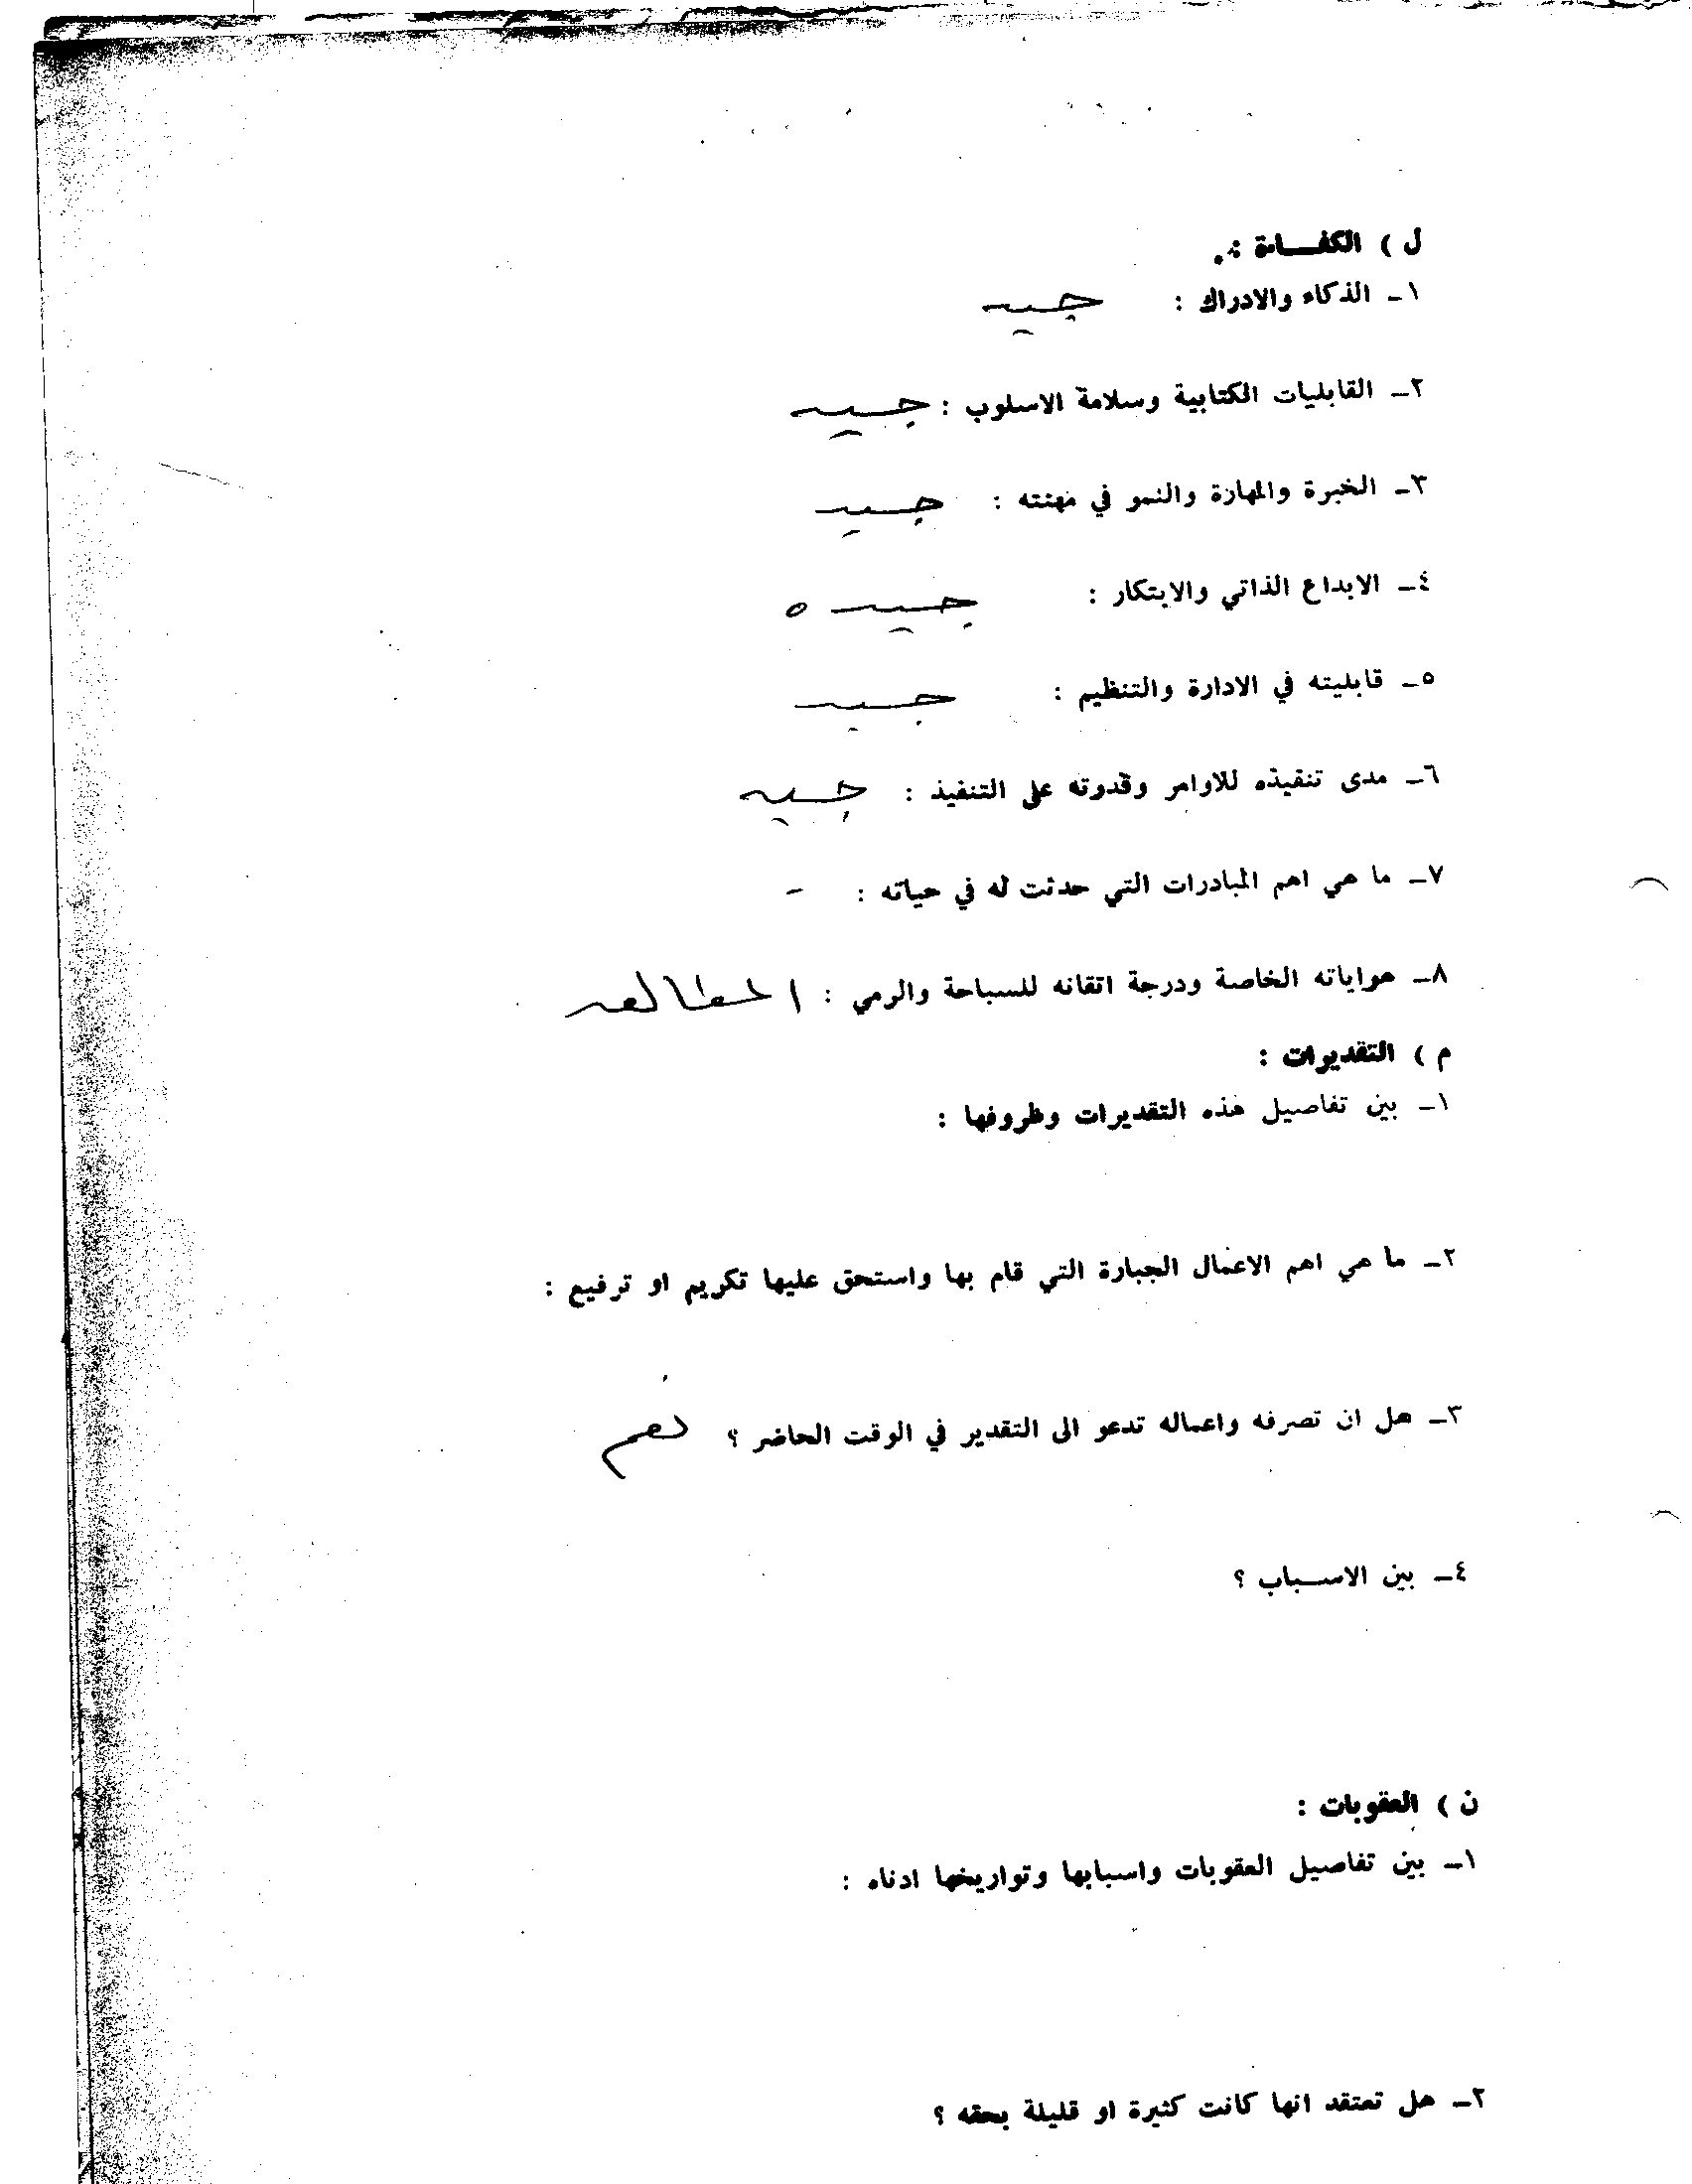 ل ) الكفــاءة :.
١ـ الذكاء والادراك : جيد
٢ـ القابليات الكتابية وسلامة الاسلوب : جيد
٣ـ الخبرة والمهارة والنمو في مهنته : جيد
٤ـ الابداع الذاتي والابتكار : جيد ه
٥ـ قابليته في الادارة والتنظيم : جيد
٦ـ مدى تنفيذه للاوامر وقدرته على التنفيذ : جيد
٧ـ ما هي اهم المبادرات التي حدثت له في حياته : -
٨ـ هواياته الخاصة ودرجة اتقانه للسباحة والرمي : المطالعه
م ) التقديرات :
١ـ بين تفاصيل هذه التقديرات وظروفها :
٢ـ ما هي اهم الاعمال الجبارة التي قام بها واستحق عليها تكريم او ترفيع :
٣ـ هل ان تصرفه واعماله تدعو الى التقدير في الوقت الحاضر ؟ نعم
٤ـ بين الاســباب ؟
ن ) العقوبات :
١ـ بين تفاصيل العقوبات واسبابها وتواريخها ادناه :
٢ـ هل تعتقد انها كانت كثيرة او قليلة بحقه ؟